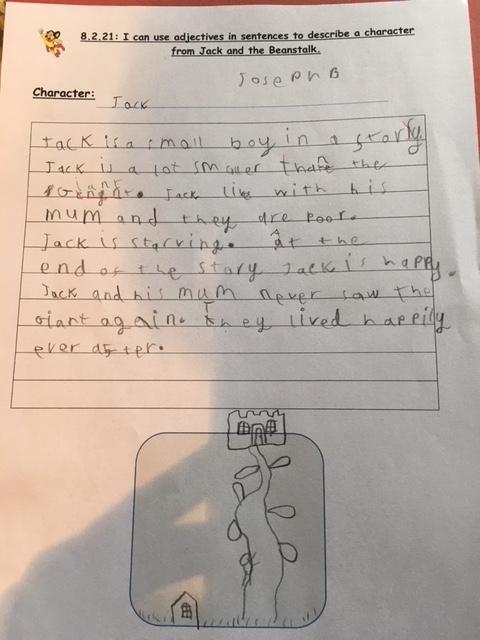 8.2.21: I can use adjectives in sentences to describe a character
from Jack and the Beanstalk.
Joseph B
Character: Jack
Jack is a small boy in a story
Jack is a lot smaller than the
Jack like with his
mum and they are poor.
Jack is starving. At the
end of the story Jack is happy.
Jack and his mum never saw the
giant again. They lived happily
ever after.